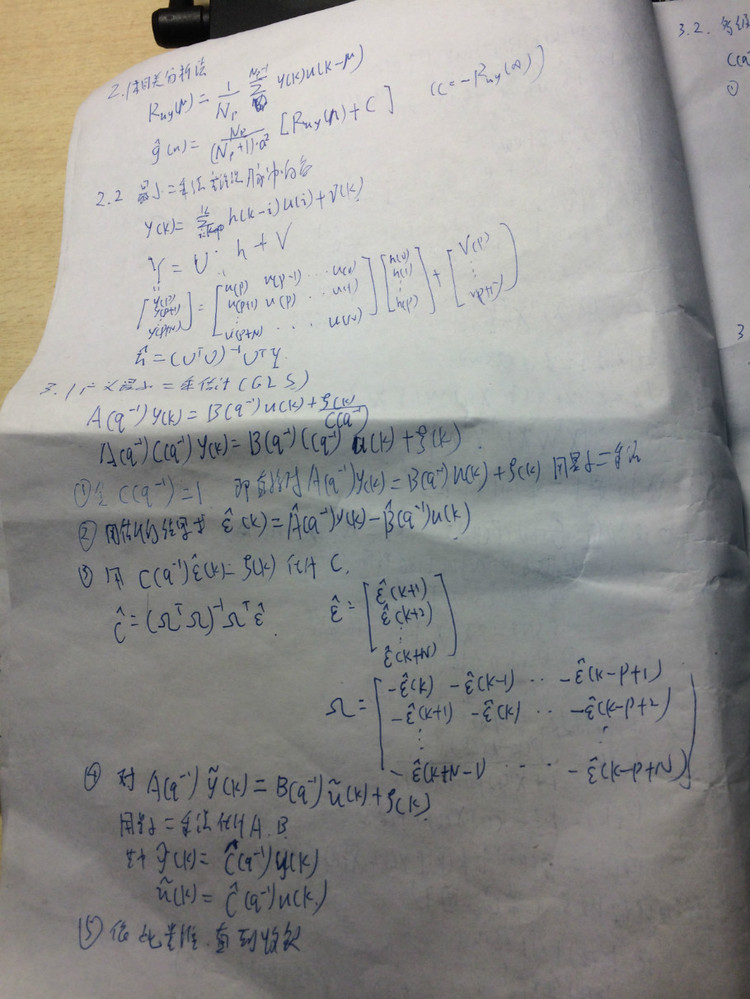 2.1 相关分析法
Ruy(μ) = 1/Np Σ^{Np-1} y(k)u(k-μ)
ĝ(μ) = Np/((Np+1)·a²) [Ruy(μ) + C] (C = -Ruy(∞))
2.2 最小二乘法
y(k) = Σ^{k} h(k-i)u(i) + V(k)
Y = U · h + V
[y(p) y(p+1) ⋮ y(p+N)] = [u(p) u(p-1) ··· u(0) u(p+1) u(p) ··· u(1) ⋮ u(p+N) ··· u(N)] [h(0) h(1) ⋮ h(p)] + [V(p) ⋮ V(p+N)]
ĥ = (UᵀU)⁻¹UᵀY
3.1 广义最小二乘估计 (GLS)
A(q⁻¹)y(k) = B(q⁻¹)u(k) + ξ(k)/C(q⁻¹)
A(q⁻¹)C(q⁻¹)y(k) = B(q⁻¹)C(q⁻¹)u(k) + ξ(k).
① 令 C(q⁻¹) = 1 即直接对 A(q⁻¹)y(k) = B(q⁻¹)u(k) + ξ(k) 用最小二乘法
② 用估计的结果求 ε̂(k) = Â(q⁻¹)y(k) - B̂(q⁻¹)u(k)
③ 用 C(q⁻¹)ε̂(k) = ξ(k) 估计 C.
Ĉ = (ΩᵀΩ)⁻¹Ωᵀε̂ ε̂ = [ε̂(k+1) ε̂(k+2) ⋮ ε̂(k+N)]
Ω = [-ε̂(k) -ε̂(k-1) ·· -ε̂(k-p+1)
-ε̂(k+1) -ε̂(k) ·· -ε̂(k-p+2)
⋮ ⋮
-ε̂(k+N-1) ··· -ε̂(k-p+N)]
④ 对 A(q⁻¹)ỹ(k) = B(q⁻¹)ũ(k) + ξ(k)
用最小二乘法估计 A.B
其中 ỹ(k) = Ĉ(q⁻¹)y(k)
ũ(k) = Ĉ(q⁻¹)u(k)
⑤ 直到收敛
3.2.
C(q⁻
①
3